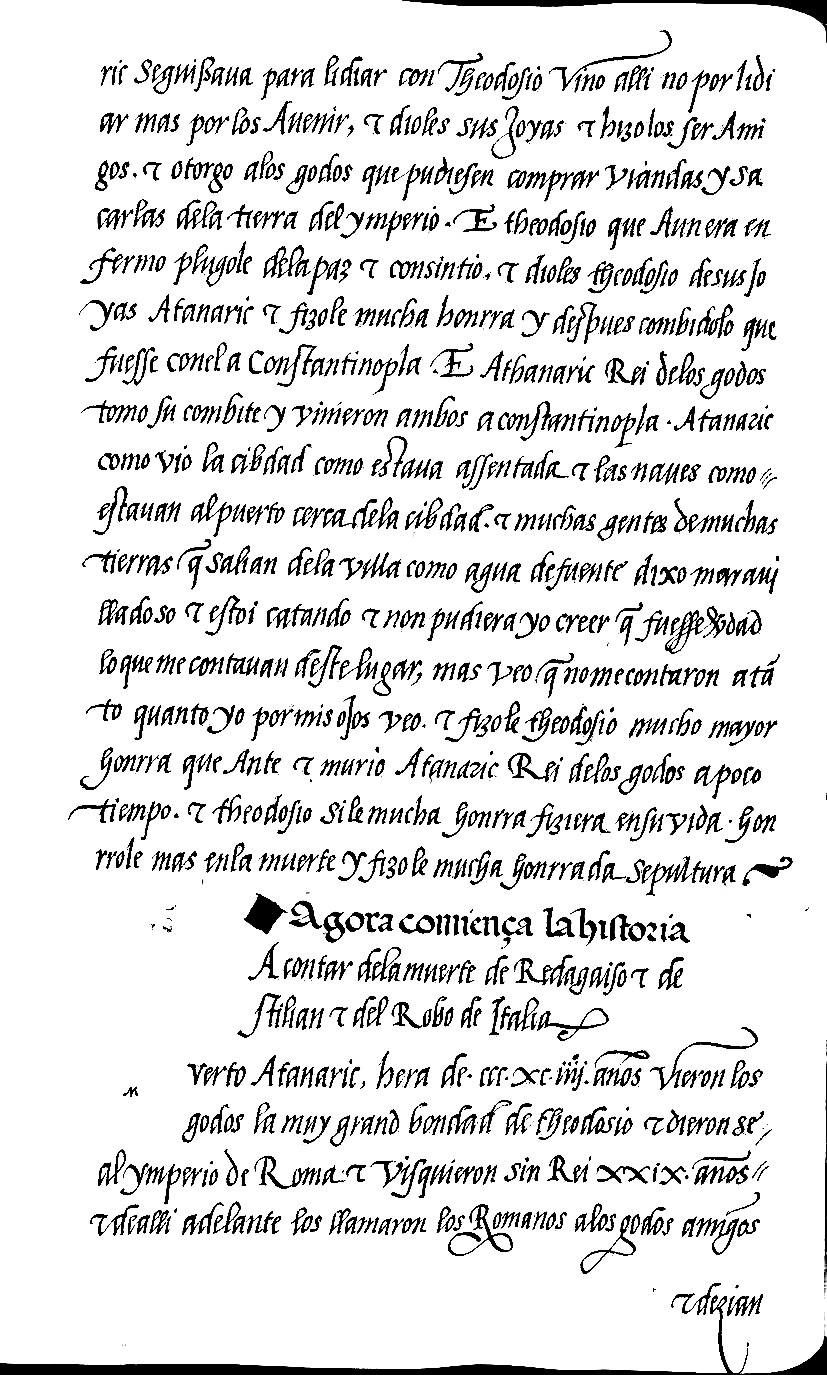 ric Seguißaua para lidiar con Theodosio Vino alli no por lidi
ar mas por los Auenir, τ dioles sus Joyas τ hizolos ser Ami
gos. τ otorgo alos godos que pudiesen comprar viandas y sa
carlas dela tierra del ymperio. E theodosio que Aun era en
fermo plugole dela paz τ consintio. τ dioles theodosio de sus Jo
yas Atanaric τ fizole mucha honrra y despues combidolo que
fuesse conel a Constantinopla E Athanaric Rei delos godos
tomo su combite y vinieron ambos a constantinopla. Atanaric
como vio la cibdad como estaua assentada τ las naues como
estauan al puerto cerca dela cibdad. τ muchas gentes de muchas
tierras q̃ salian dela villa como agua de fuente dixo maraui
llado so τ estoi catando τ non pudiera yo creer q̃ fuesse vdad
lo que me contauan deste lugar, mas veo q̃ no me contaron atã
to quanto yo por mis ojos veo. τ fizole theodosio mucho mayor
honrra que Ante τ murio Atanaric Rei delos godos a poco
tiempo. τ theodosio si le mucha honrra fiziera en su vida. hon
rrole mas enla muerte y fizole mucha honrrada sepultura
Agora comiença la historia
A contar dela muerte de Redagaiso τ de
Stilian τ del Robo de Italia
verto Atanaric, hera de. ccc. xc. iiij. años vieron los
godos la muy grand bondad de theodosio τ dieron se
al ymperio de Roma τ visquieron sin Rei xxix. años
τ de alli adelante los llamaron los Romanos alos godos amigos
τ dezian